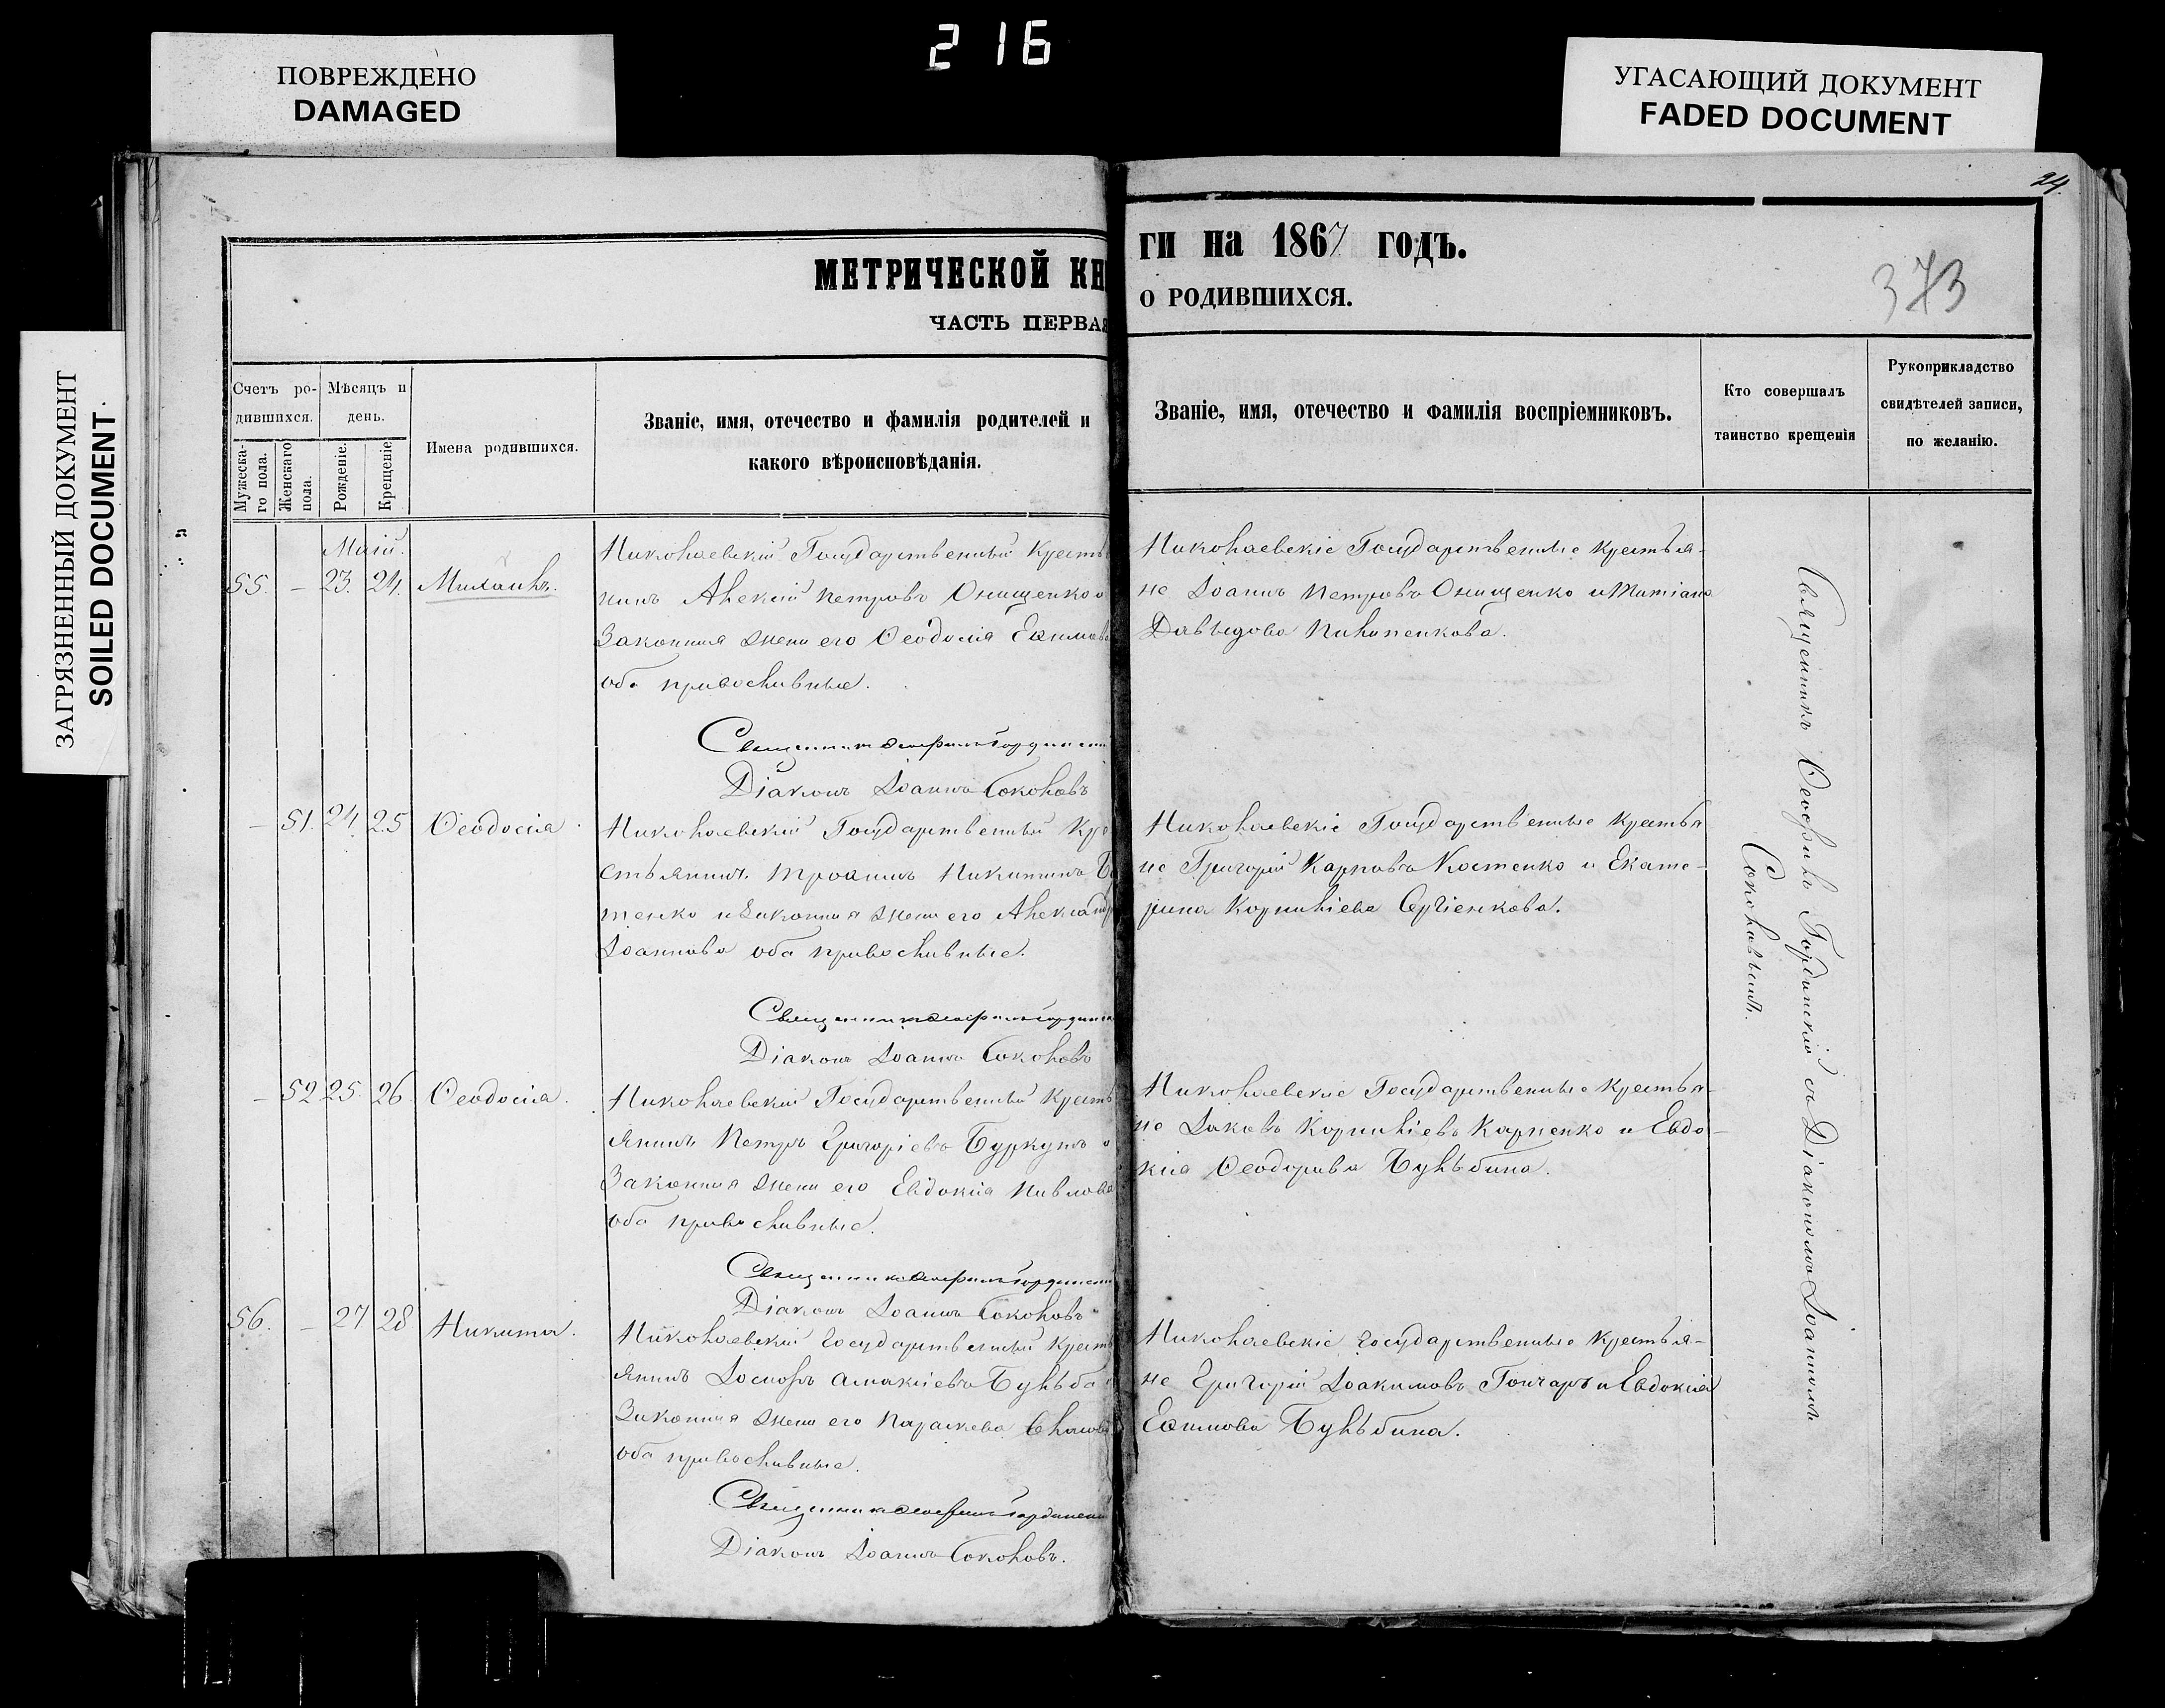 216
ПОВРЕЖДЕНО
DAMAGED
УГАСАЮЩИЙ ДОКУМЕНТ
FADED DOCUMENT
ЗАГРЯЗНЕННЫЙ ДОКУМЕНТ
SOILED DOCUMENT
24.
МЕТРИЧЕСКОЙ КН
ЧАСТЬ ПЕРВАЯ
ги на 1867 годъ.
О РОДИВШИХСЯ.
373
Счетъ ро-
дившихся.
Мужеска-
го пола.
Женскаго
пола.
Мѣсяцъ и
день.
Рожденіе.
Крещеніе
Имена родившихся.
Званіе, имя, отечество и фамилія родителей и
какого вѣроисповѣданія.
Званіе, имя, отечество и фамилія воспріемниковъ.
Кто совершалъ
таинство крещенія
Рукоприкладство
свидѣтелей записи,
по желанію.
Маій.
55. – 23. 24. Михаилъ.
Николаевскій Государственный Кресть
нинъ Алексій Петровъ Онищенко и
Законная жена его Ѳеодосія Евѳимова
оба православные.
Священникъ Ѳеофилъ Гординскій
Діаконъ Іоаннъ Соколовъ
Николаевскіе Государственные Крестья-
не Іоаннъ Петровъ Онищенко и Татіана
Давыдова
– 51. 24. 25 Ѳеодосія.
Николаевскій Государственный Кре
стьянинъ Троаннъ Никитинъ
тенко и Законная жена его Александр
Іоаннова оба православные.
Священникъ Ѳеофилъ Гординскій
Діаконъ Іоаннъ Соколовъ
Николаевскіе Государственные Крестья
не Григорій Карповъ Костенко и Екате-
рина Корниліева Сергіенкова.
– 52 25. 26. Ѳеодосія.
Николаевскій Государственный Кресть
янинъ Петръ Григоріевъ Буркутъ и
Законная жена его Евдокія Павлова
оба православные.
Священникъ Ѳеофилъ Гординскій
Діаконъ Іоаннъ Соколовъ
Николаевскіе Государственные Крестья-
не Іаковъ Корниліевъ Карпенко и Евдо-
кія Ѳеодорова Цулѣбина.
56. – 27 28 Никита.
Николаевскій Государственный Кресть
янинъ Іосифъ Цулѣба
Законная жена его Параскева
оба православные.
Священникъ Ѳеофилъ Гординскій
Діаконъ Іоаннъ Соколовъ.
Николаевскіе Государственные Крестья-
не Григорій Іоакимовъ Гончаръ и Евдокія
Евѳимова Цулѣбина.
Священникъ Ѳеофилъ Гординскій съ Діакономъ Іоанномъ
Соколовымъ.